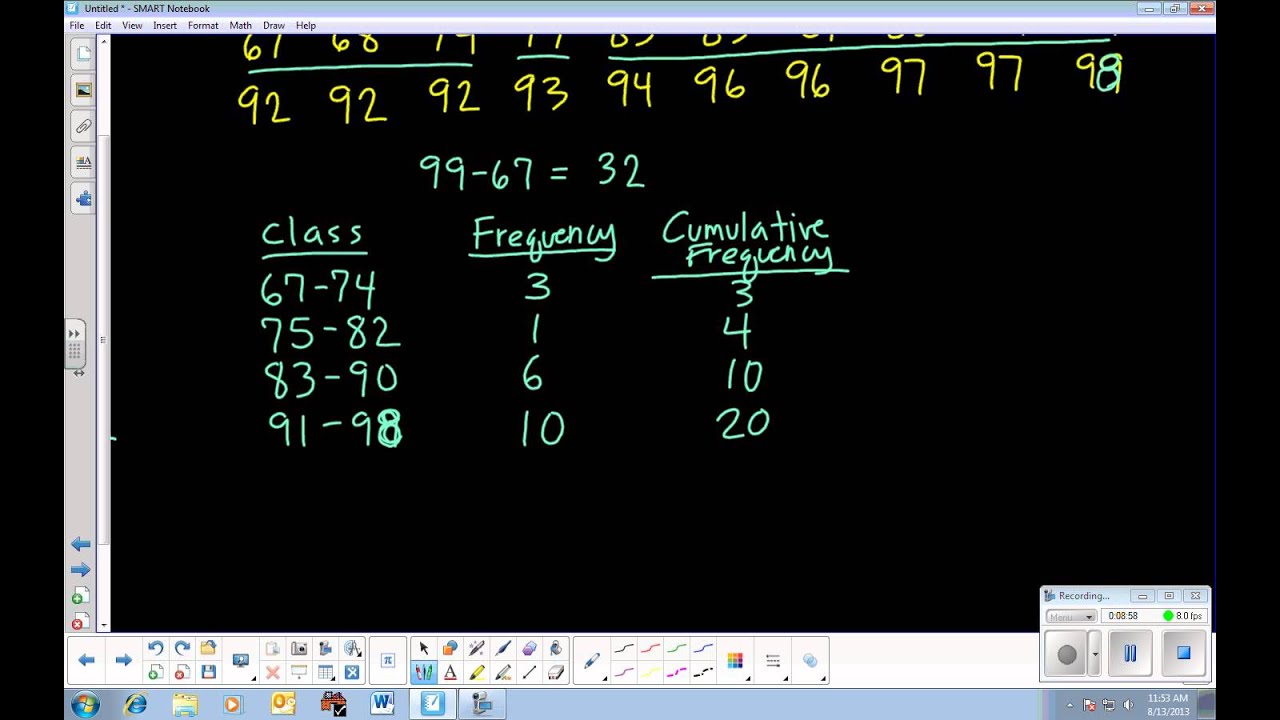 Untitled * - SMART Notebook
File Edit View Insert Format Math Draw Help
67 68 74
92 92 92 93 94 96 96 97 97 98
99-67 = 32
Class Frequency Cumulative Frequency
67-74 3 3
75-82 1 4
83-90 6 10
91-98 10 20
Recording...
Menu 0:08:58 8.0 fps
π
A
11:53 AM
8/13/2013